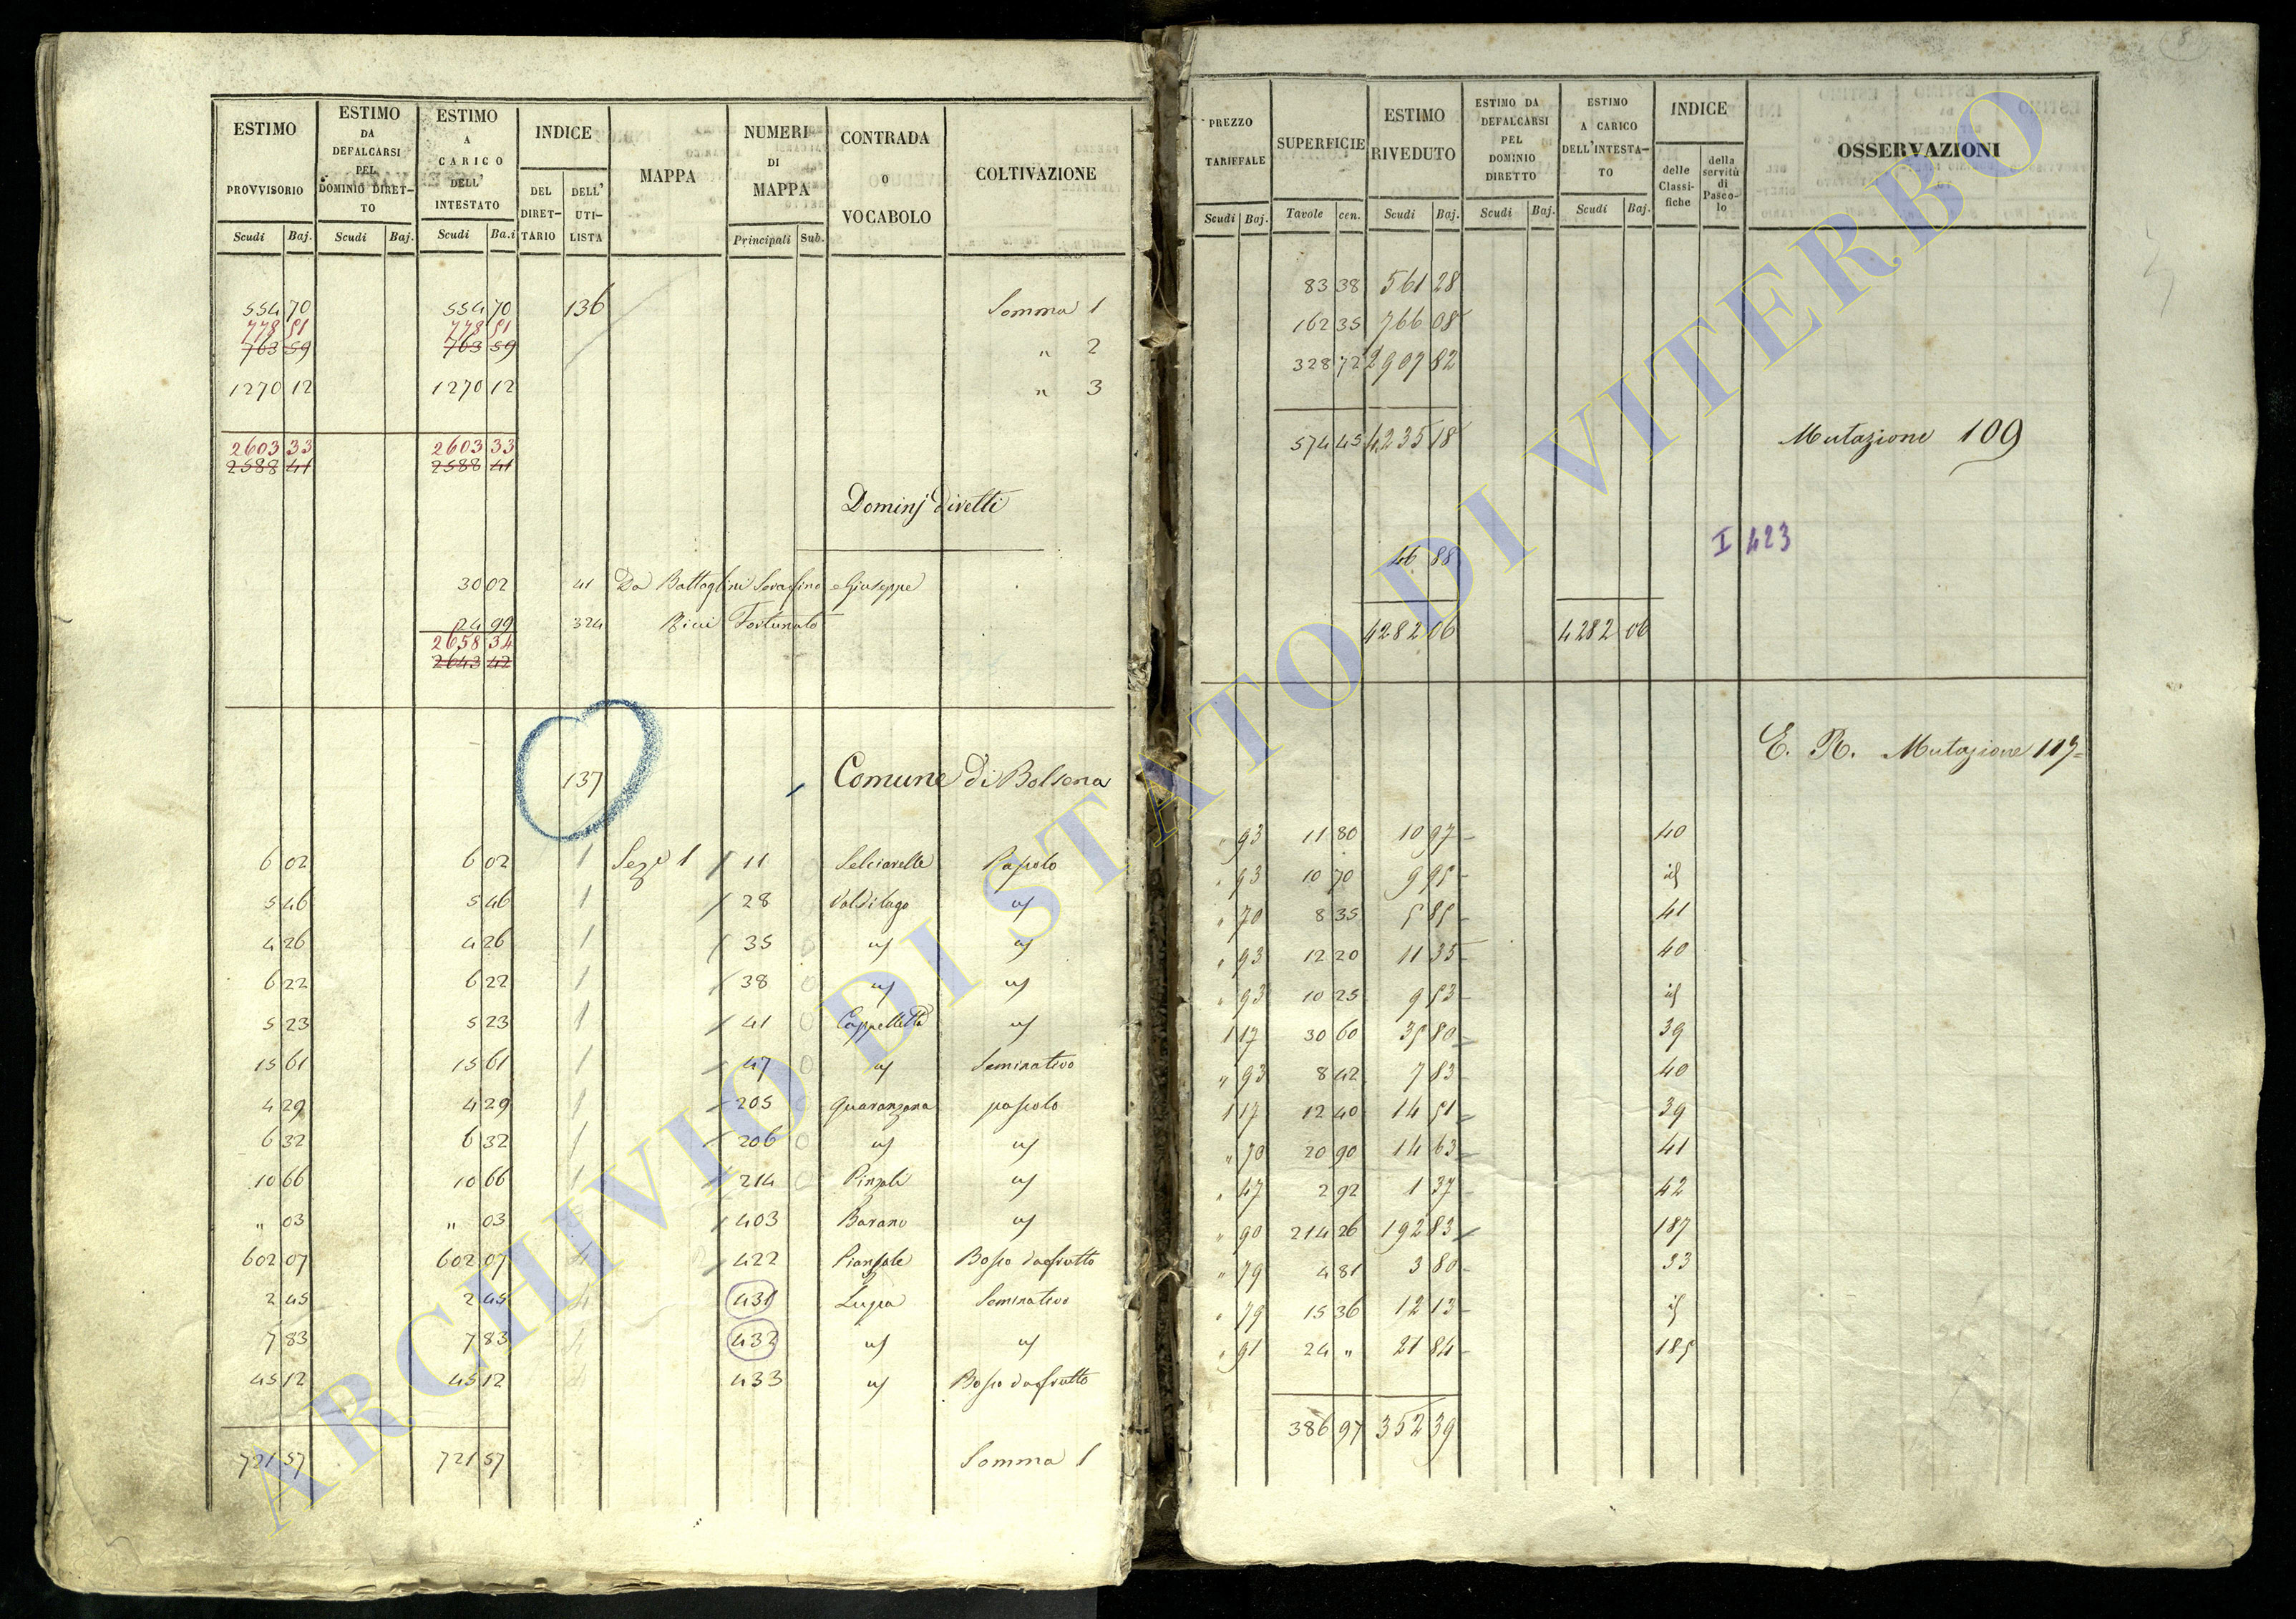 ESTIMO PROVVISORIO Scudi Baj. | ESTIMO DA DEFALCARSI PEL DOMINIO DIRET-TO Scudi Baj. | ESTIMO A CARICO DELL' INTESTATO Scudi Ba.i | INDICE DEL DIRET-TARIO DELL' UTI-LISTA | MAPPA | NUMERI DI MAPPA Principali Sub. | CONTRADA O VOCABOLO | COLTIVAZIONE
554 70 554 70 136 Somma 1
778 51 778 51
763 59 763 59 " 2
1270 12 1270 12 " 3
2603 33 2603 33
2588 41 2588 41
Dominj diretti
30 02 41 Da Battaglini Serafino e Giuseppe
24 99 324 Ricci Fortunato
2658 34
2643 42
137 Comune di Bolsena
6 02 6 02 1 Sez.e 1 11 Selciarella Pascolo
5 46 5 46 1 28 Valdilago "
4 26 4 26 1 35 " "
6 22 6 22 1 38 " "
5 23 5 23 1 41 Cappelletta "
15 61 15 61 1 47 " Seminativo
4 29 4 29 1 205 Quaranzana pascolo
6 32 6 32 1 206 " "
10 66 10 66 1 214 Pinzale "
" 03 " 03 403 Barano "
602 07 602 07 4 422 Pianzale Bosco da frutto
2 45 2 45 4 431 Lupa Seminativo
7 83 7 83 4 432 " "
45 12 45 12 4 433 " Bosco da frutto
721 57 721 57 Somma 1
8
PREZZO TARIFFALE Scudi Baj. | SUPERFICIE Tavole cen. | ESTIMO RIVEDUTO Scudi Baj. | ESTIMO DA DEFALCARSI PEL DOMINIO DIRETTO Scudi Baj. | ESTIMO A CARICO DELL'INTESTA-TO Scudi Baj. | INDICE delle Classi-fiche della servitù di Pasco-lo | OSSERVAZIONI
83 38 561 28
162 35 766 08
328 72 2907 82
574 45 4235 18 Mutazione 109
I 423
46 88
4282 06 4282 06
E. R. Mutazione 117=
" 93 11 80 10 97 40
" 93 10 70 9 95 id
" 70 8 35 5 85 41
" 93 12 20 11 35 40
" 93 10 25 9 53 id
1 17 30 60 35 80 39
" 93 8 42 7 83 40
1 17 12 40 14 51 39
" 70 20 90 14 63 41
" 47 2 92 1 37 42
" 90 214 26 192 83 187
" 79 4 81 3 80 33
" 79 15 36 12 13 id
" 91 24 " 21 84 185
386 97 352 39
ARCHIVIO DI STATO DI VITERBO